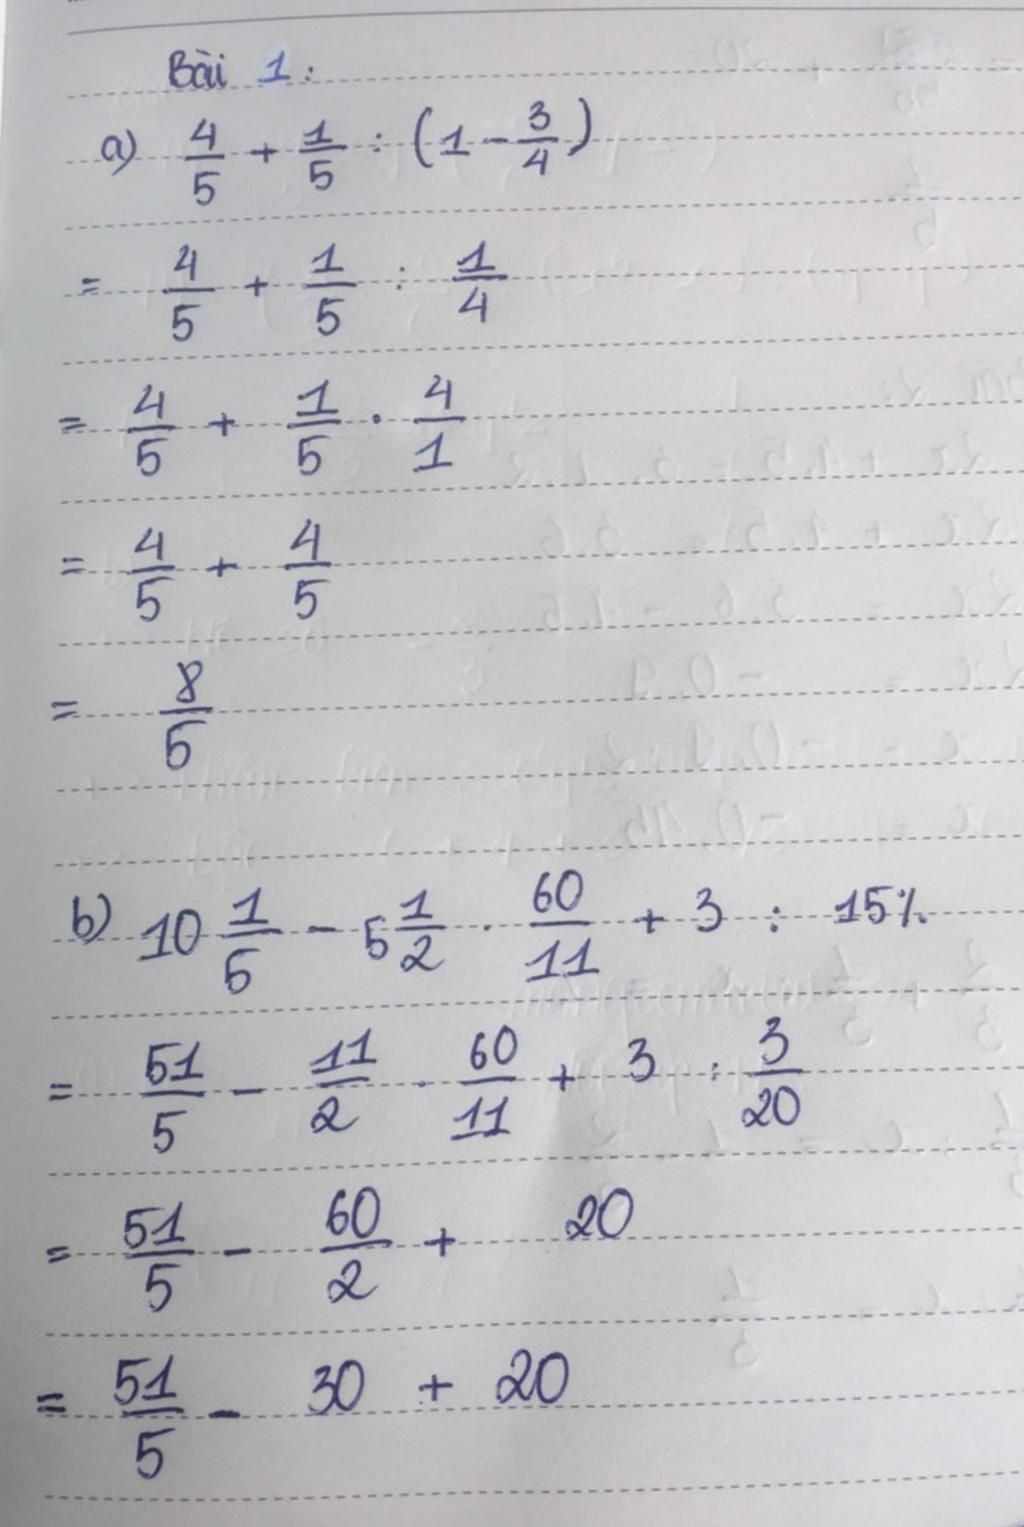 Bài 1:
a) 4/5 + 1/5 : (1 - 3/4)
= 4/5 + 1/5 : 1/4
= 4/5 + 1/5 . 4/1
= 4/5 + 4/5
= 8/5
b) 10 1/5 - 5 1/2 . 60/11 + 3 : 15%
= 51/5 - 11/2 . 60/11 + 3 : 3/20
= 51/5 - 60/2 + 20
= 51/5 - 30 + 20